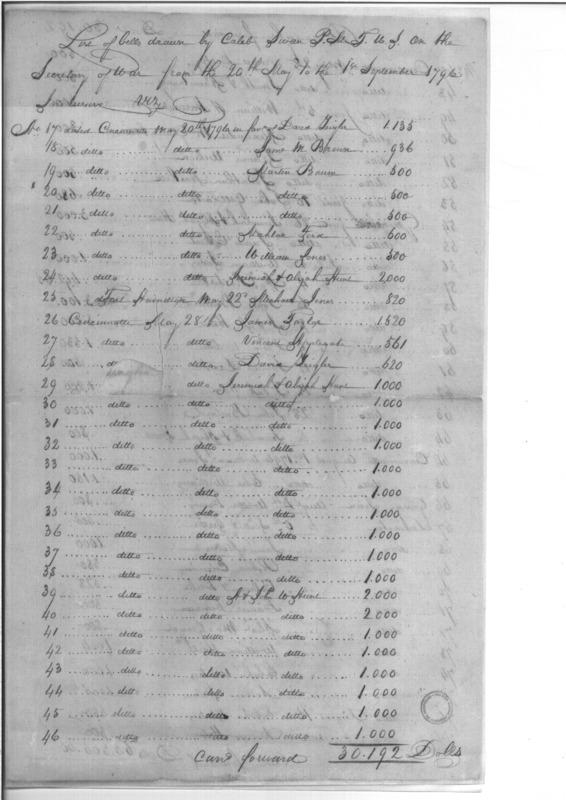 List of bills drawn by Caleb Swan P.M.T.U.S. on the
Secretary of War from the 20th May to the 1st September 1796
Inclusive Viz
No. 17 dated Cincinnati May 20th 1796 in favor David Zeigler 1.135
18 ditto ditto James M. Brown 936
19 ditto ditto Martin Baum 500
20 ditto ditto ditto 500
21 ditto ditto ditto 500
22 ditto ditto Mahlon Ford 600
23 ditto ditto William Jones 300
24 ditto ditto Jeremiah & Abijah Hunt 2000
25 Fort Hamilton May 22d Abraham Jones 820
26 Cincinnati May 28th James Taylor 1.520
27 ditto ditto Vincent 561
28 do ditto David Zeigler 620
29 ditto Jeremiah & Abijah Hunt 1000
30 ditto ditto ditto 1.000
31 ditto ditto ditto 1.000
32 ditto ditto ditto 1.000
33 ditto ditto ditto 1.000
34 ditto ditto ditto 1.000
35 ditto ditto ditto 1.000
36 ditto ditto ditto 1.000
37 ditto ditto ditto 1.000
38 ditto ditto ditto 1.000
39 ditto ditto A & J. W Hunt 2.000
40 ditto ditto ditto 2.000
41 ditto ditto ditto 1.000
42 ditto ditto ditto 1.000
43 ditto ditto ditto 1.000
44 ditto ditto ditto 1.000
45 ditto ditto ditto 1.000
46 ditto ditto ditto 1.000
Card forward 30.192 Dolls